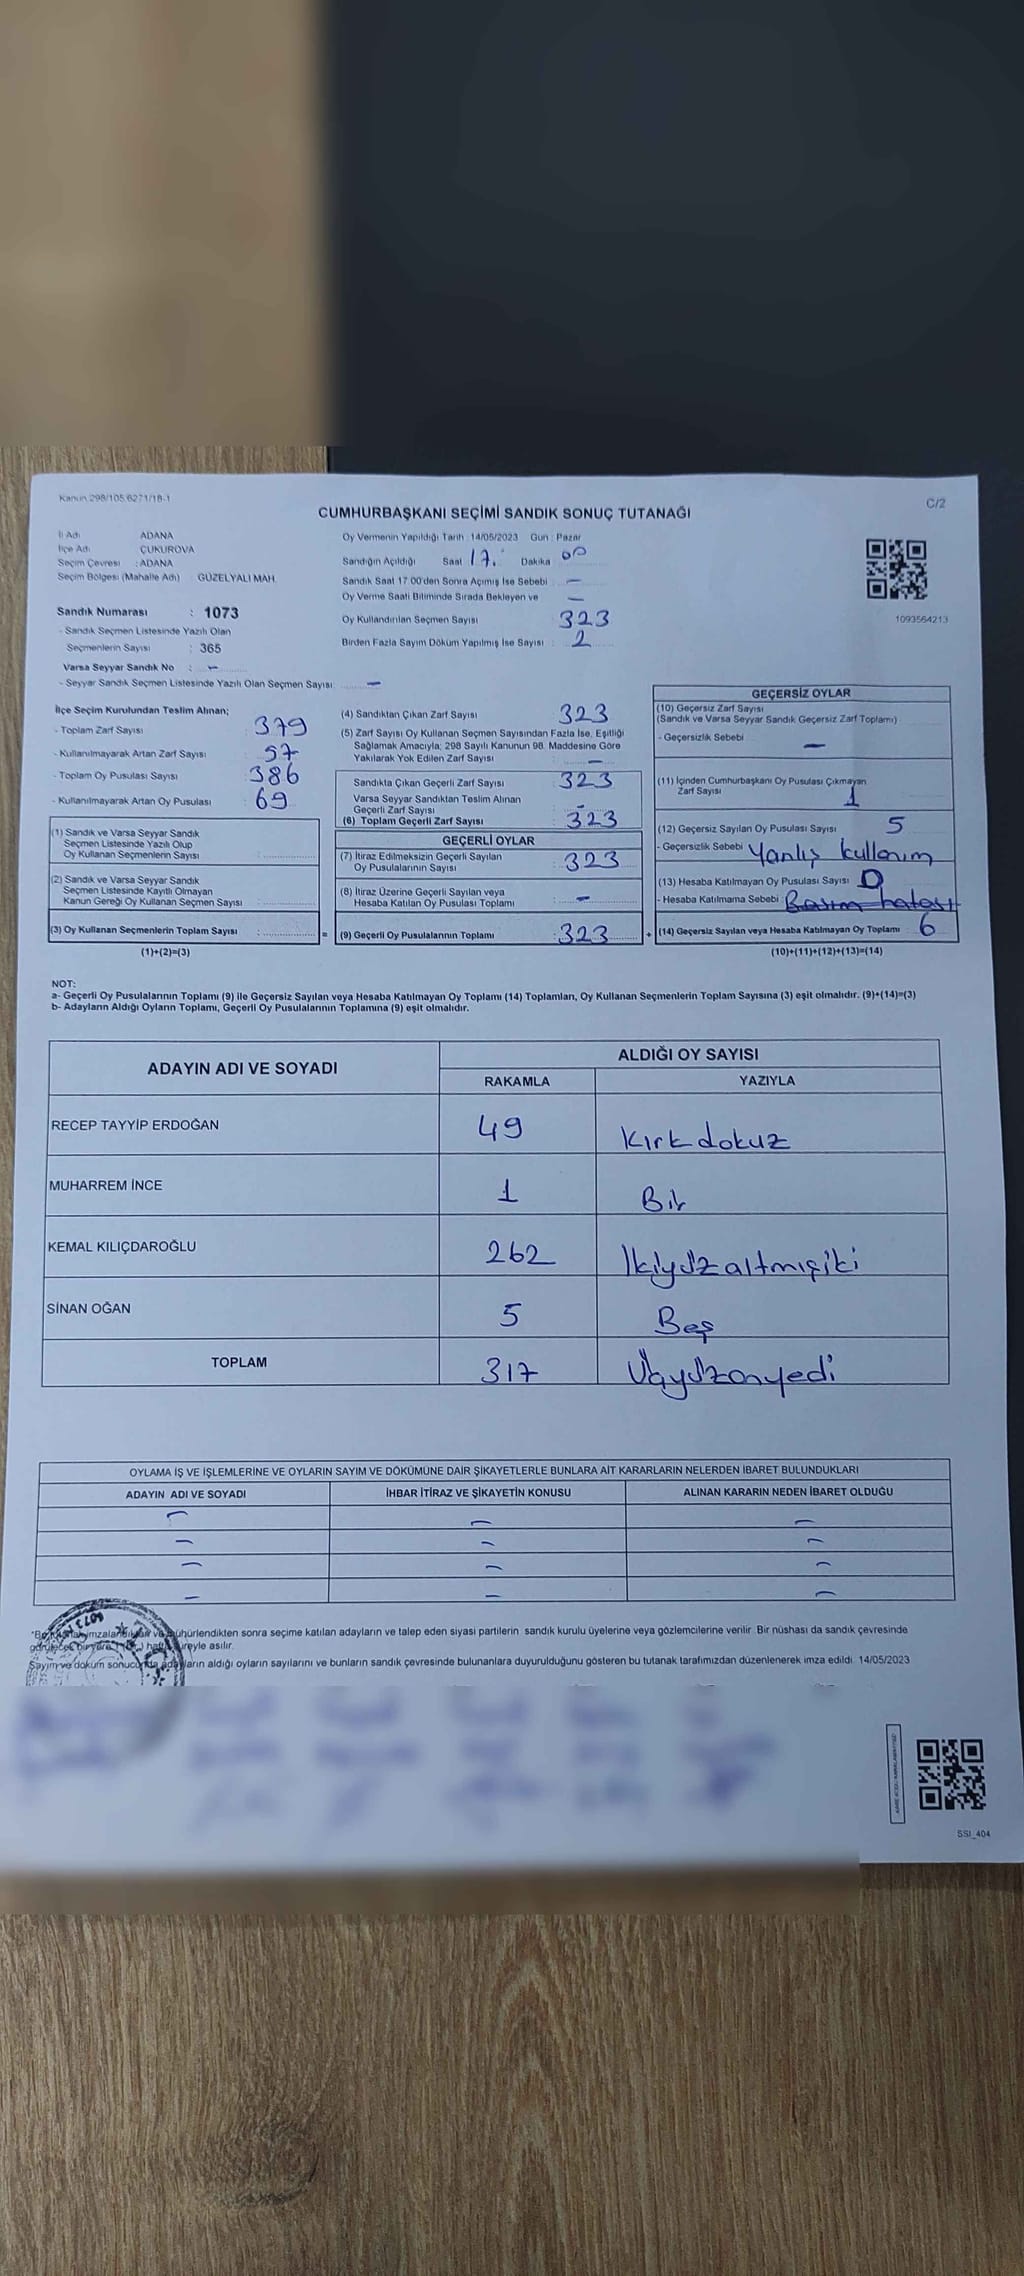 Kanun 298/105 6271/18-1
C/2
CUMHURBAŞKANI SEÇİMİ SANDIK SONUÇ TUTANAĞI
İl Adı ADANA
İlçe Adı ÇUKUROVA
Seçim Çevresi : ADANA
Seçim Bölgesi (Mahalle Adı) GÜZELYALI MAH.
Sandık Numarası : 1073
- Sandık Seçmen Listesinde Yazılı Olan
Seçmenlerin Sayısı : 365
Varsa Seyyar Sandık No : -
- Seyyar Sandık Seçmen Listesinde Yazılı Olan Seçmen Sayısı -
Oy Vermenin Yapıldığı Tarih : 14/05/2023 Gün : Pazar
Sandığın Açıldığı Saat 17. Dakika 00
Sandık Saat 17:00'den Sonra Açımış İse Sebebi -
Oy Verme Saati Bitiminde Sırada Bekleyen ve -
Oy Kullandırılan Seçmen Sayısı 323
Birden Fazla Sayım Döküm Yapılmış İse Sayısı : 2
1093564213
İlçe Seçim Kurulundan Teslim Alınan;
- Toplam Zarf Sayısı : 379
- Kullanılmayarak Artan Zarf Sayısı : 57
- Toplam Oy Pusulası Sayısı : 386
- Kullanılmayarak Artan Oy Pusulası : 69
(1) Sandık ve Varsa Seyyar Sandık
Seçmen Listesinde Yazılı Olup
Oy Kullanan Seçmenlerin Sayısı :
(2) Sandık ve Varsa Seyyar Sandık
Seçmen Listesinde Kayıtlı Olmayan
Kanun Gereği Oy Kullanan Seçmen Sayısı :
(3) Oy Kullanan Seçmenlerin Toplam Sayısı : =
(1)+(2)=(3)
(4) Sandıktan Çıkan Zarf Sayısı : 323
(5) Zarf Sayısı Oy Kullanan Seçmen Sayısından Fazla İse, Eşitliği
Sağlamak Amacıyla; 298 Sayılı Kanunun 98. Maddesine Göre
Yakılarak Yok Edilen Zarf Sayısı : -
Sandıkta Çıkan Geçerli Zarf Sayısı : 323
Varsa Seyyar Sandıktan Teslim Alınan
Geçerli Zarf Sayısı : -
(6) Toplam Geçerli Zarf Sayısı : 323
GEÇERLİ OYLAR
(7) İtiraz Edilmeksizin Geçerli Sayılan
Oy Pusulalarının Sayısı : 323
(8) İtiraz Üzerine Geçerli Sayılan veya
Hesaba Katılan Oy Pusulası Toplamı : -
(9) Geçerli Oy Pusulalarının Toplamı : 323 +
GEÇERSİZ OYLAR
(10) Geçersiz Zarf Sayısı
(Sandık ve Varsa Seyyar Sandık Geçersiz Zarf Toplamı)
- Geçersizlik Sebebi -
(11) İçinden Cumhurbaşkanı Oy Pusulası Çıkmayan
Zarf Sayısı 1
(12) Geçersiz Sayılan Oy Pusulası Sayısı 5
- Geçersizlik Sebebi Yanlış kullanım
(13) Hesaba Katılmayan Oy Pusulası Sayısı 0
- Hesaba Katılmama Sebebi Basım hatası
(14) Geçersiz Sayılan veya Hesaba Katılmayan Oy Toplamı : 6
(10)+(11)+(12)+(13)=(14)
NOT:
a- Geçerli Oy Pusulalarının Toplamı (9) ile Geçersiz Sayılan veya Hesaba Katılmayan Oy Toplamı (14) Toplamları, Oy Kullanan Seçmenlerin Toplam Sayısına (3) eşit olmalıdır. (9)+(14)=(3)
b- Adayların Aldığı Oyların Toplamı, Geçerli Oy Pusulalarının Toplamına (9) eşit olmalıdır.
ADAYIN ADI VE SOYADI ALDIĞI OY SAYISI
RAKAMLA YAZIYLA
RECEP TAYYİP ERDOĞAN 49 Kırkdokuz
MUHARREM İNCE 1 Bir
KEMAL KILIÇDAROĞLU 262 İkiyüzaltmışiki
SİNAN OĞAN 5 Beş
TOPLAM 317 Üçyüzonyedi
OYLAMA İŞ VE İŞLEMLERİNE VE OYLARIN SAYIM VE DÖKÜMÜNE DAİR ŞİKAYETLERLE BUNLARA AİT KARARLARIN NELERDEN İBARET BULUNDUKLARI
ADAYIN ADI VE SOYADI İHBAR İTİRAZ VE ŞİKAYETİN KONUSU ALINAN KARARIN NEDEN İBARET OLDUĞU
- - -
- - -
- - -
- - -
mühürlendikten sonra seçime katılan adayların ve talep eden siyasi partilerin sandık kurulu üyelerine veya gözlemcilerine verilir. Bir nüshası da sandık çevresinde
süreyle asılır.
Sayım ve döküm sonucunda adayların aldığı oyların sayılarını ve bunların sandık çevresinde bulunanlara duyurulduğunu gösteren bu tutanak tarafımızdan düzenlenerek imza edildi. 14/05/2023
SSI_404